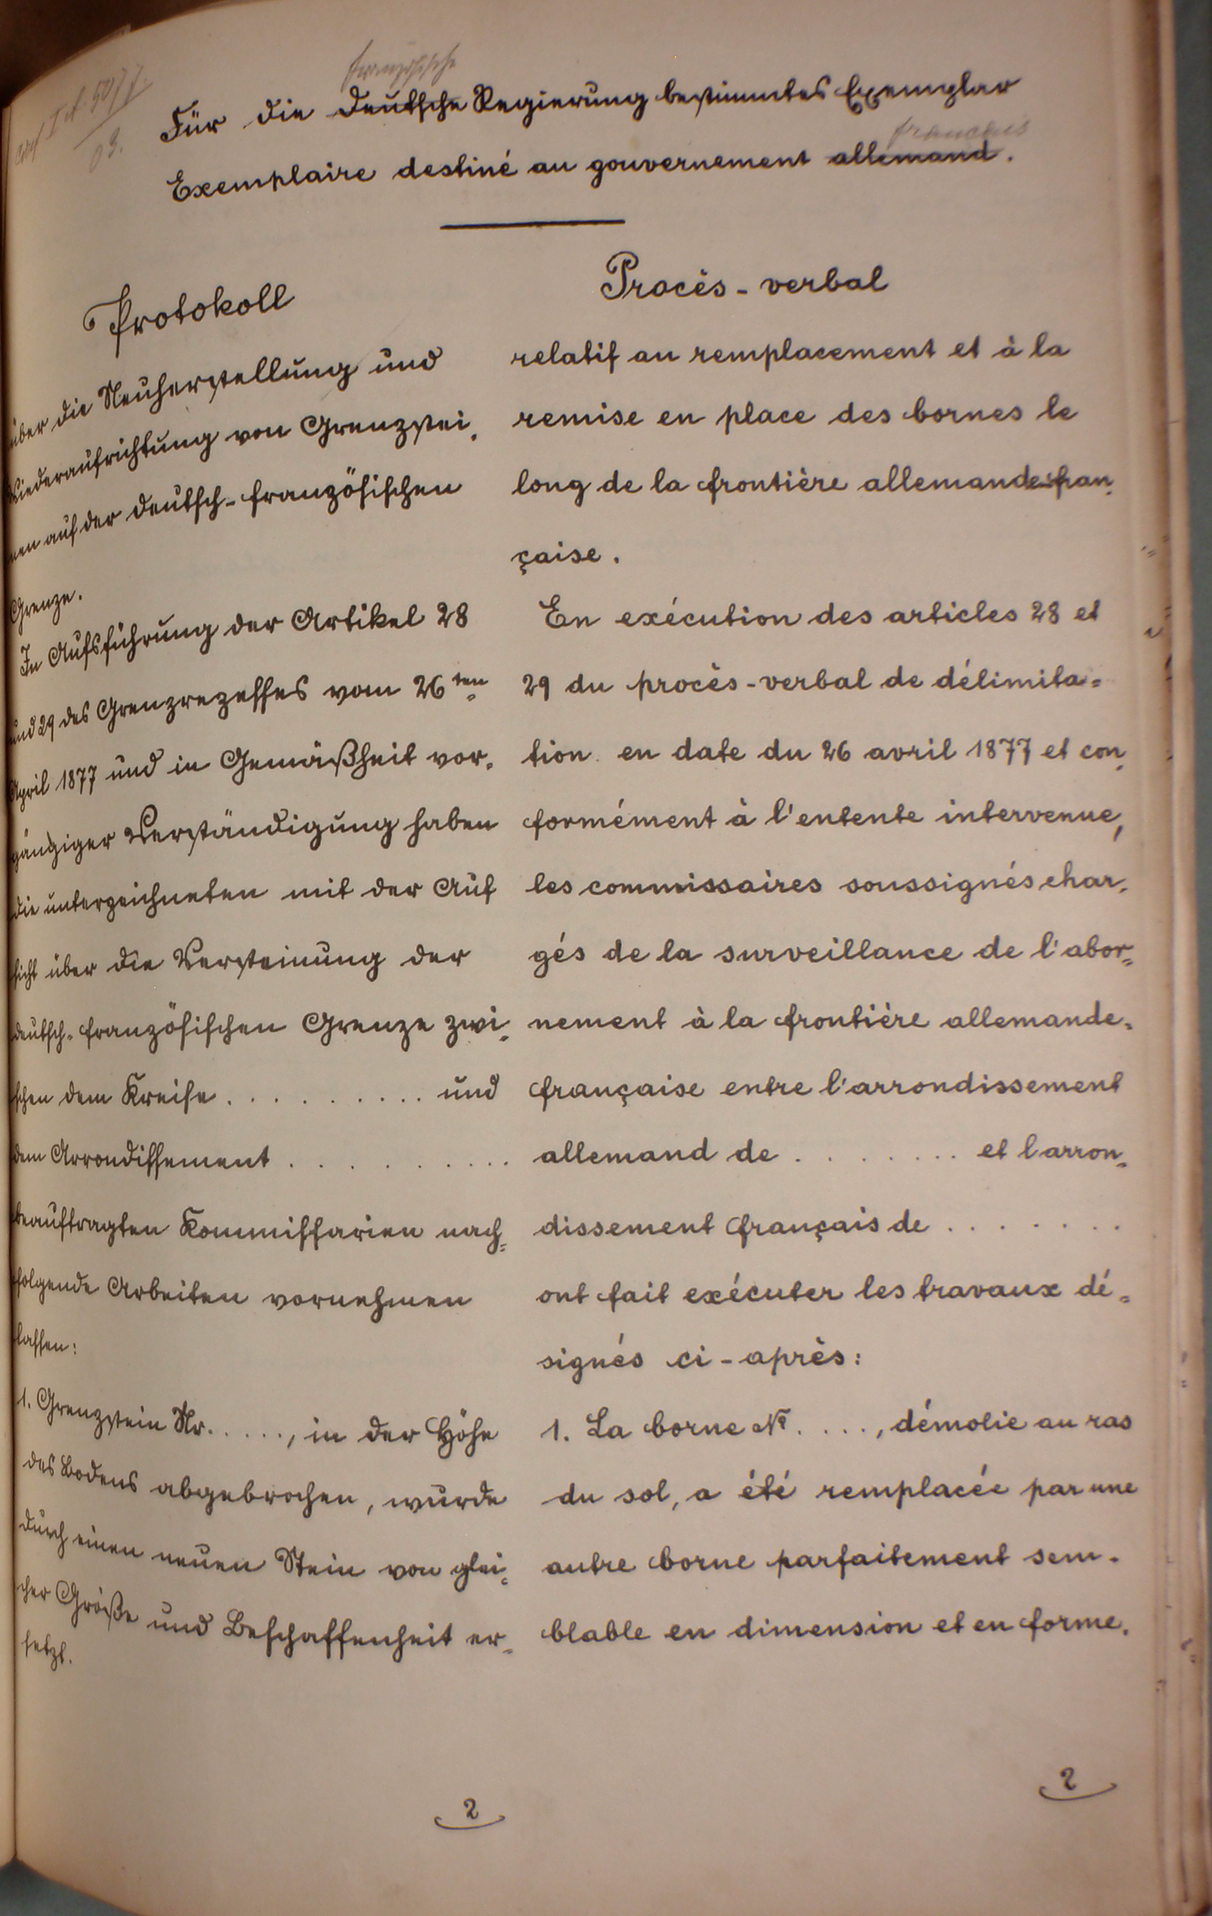 französische
Für die deutsche Regierung bestimmtes Exemplar
français
Exemplaire destiné au gouvernement allemand.
Protokoll
über die Neuherstellung und
Wiederaufrichtung von Grenzstei-
nen auf der deutsch-französischen
Grenze.
In Ausführung der Artikel 28
und 29 des Grenzrezesses vom 26ten
April 1877 und in Gemäßheit vor-
gängiger Verständigung haben
die unterzeichneten mit der Auf
sicht über die Versteinung der
deutsch-französischen Grenze zwi-
schen dem Kreise . . . . . . . . . . und
dem Arrondissement . . . . . . . . . .
beauftragten Kommissarien nach-
folgende Arbeiten vornehmen
lassen:
1. Grenzstein Nr. . . . . ., in der Höhe
des Bodens abgebrochen, wurde
durch einen neuen Stein von glei-
cher Größe und Beschaffenheit er-
setzt.
2
Procès-verbal
relatif au remplacement et à la
remise en place des bornes le
long de la frontière allemande-fran-
çaise.
En exécution des articles 28 et
29 du procès-verbal de délimita-
tion en date du 26 avril 1877 et con-
formément à l'entente intervenue,
les commissaires soussignés char-
gés de la surveillance de l'abor-
nement à la frontière allemande-
française entre l'arrondissement
allemand de . . . . . . . . et l'arron-
dissement français de . . . . . . .
ont fait exécuter les travaux dé-
signés ci-après:
1. La borne No. . . . ., démolie au ras
du sol, a été remplacée par une
autre borne parfaitement sem-
blable en dimension et en forme.
2